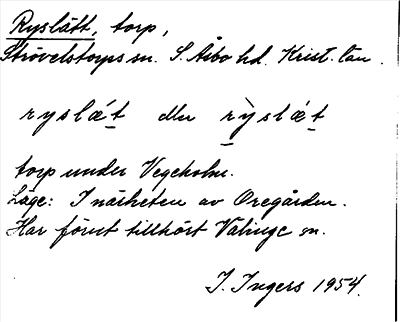 Ryslätt, torp,
Strövelstorps sn. S. Åsbo hd. Krist. län.
ryslǽt eller rỳslǽt
torp under Vegeholm.
Läge: I närheten av Oregården.
Har förut tillhört Välinge sn.
I. Ingers 1954.